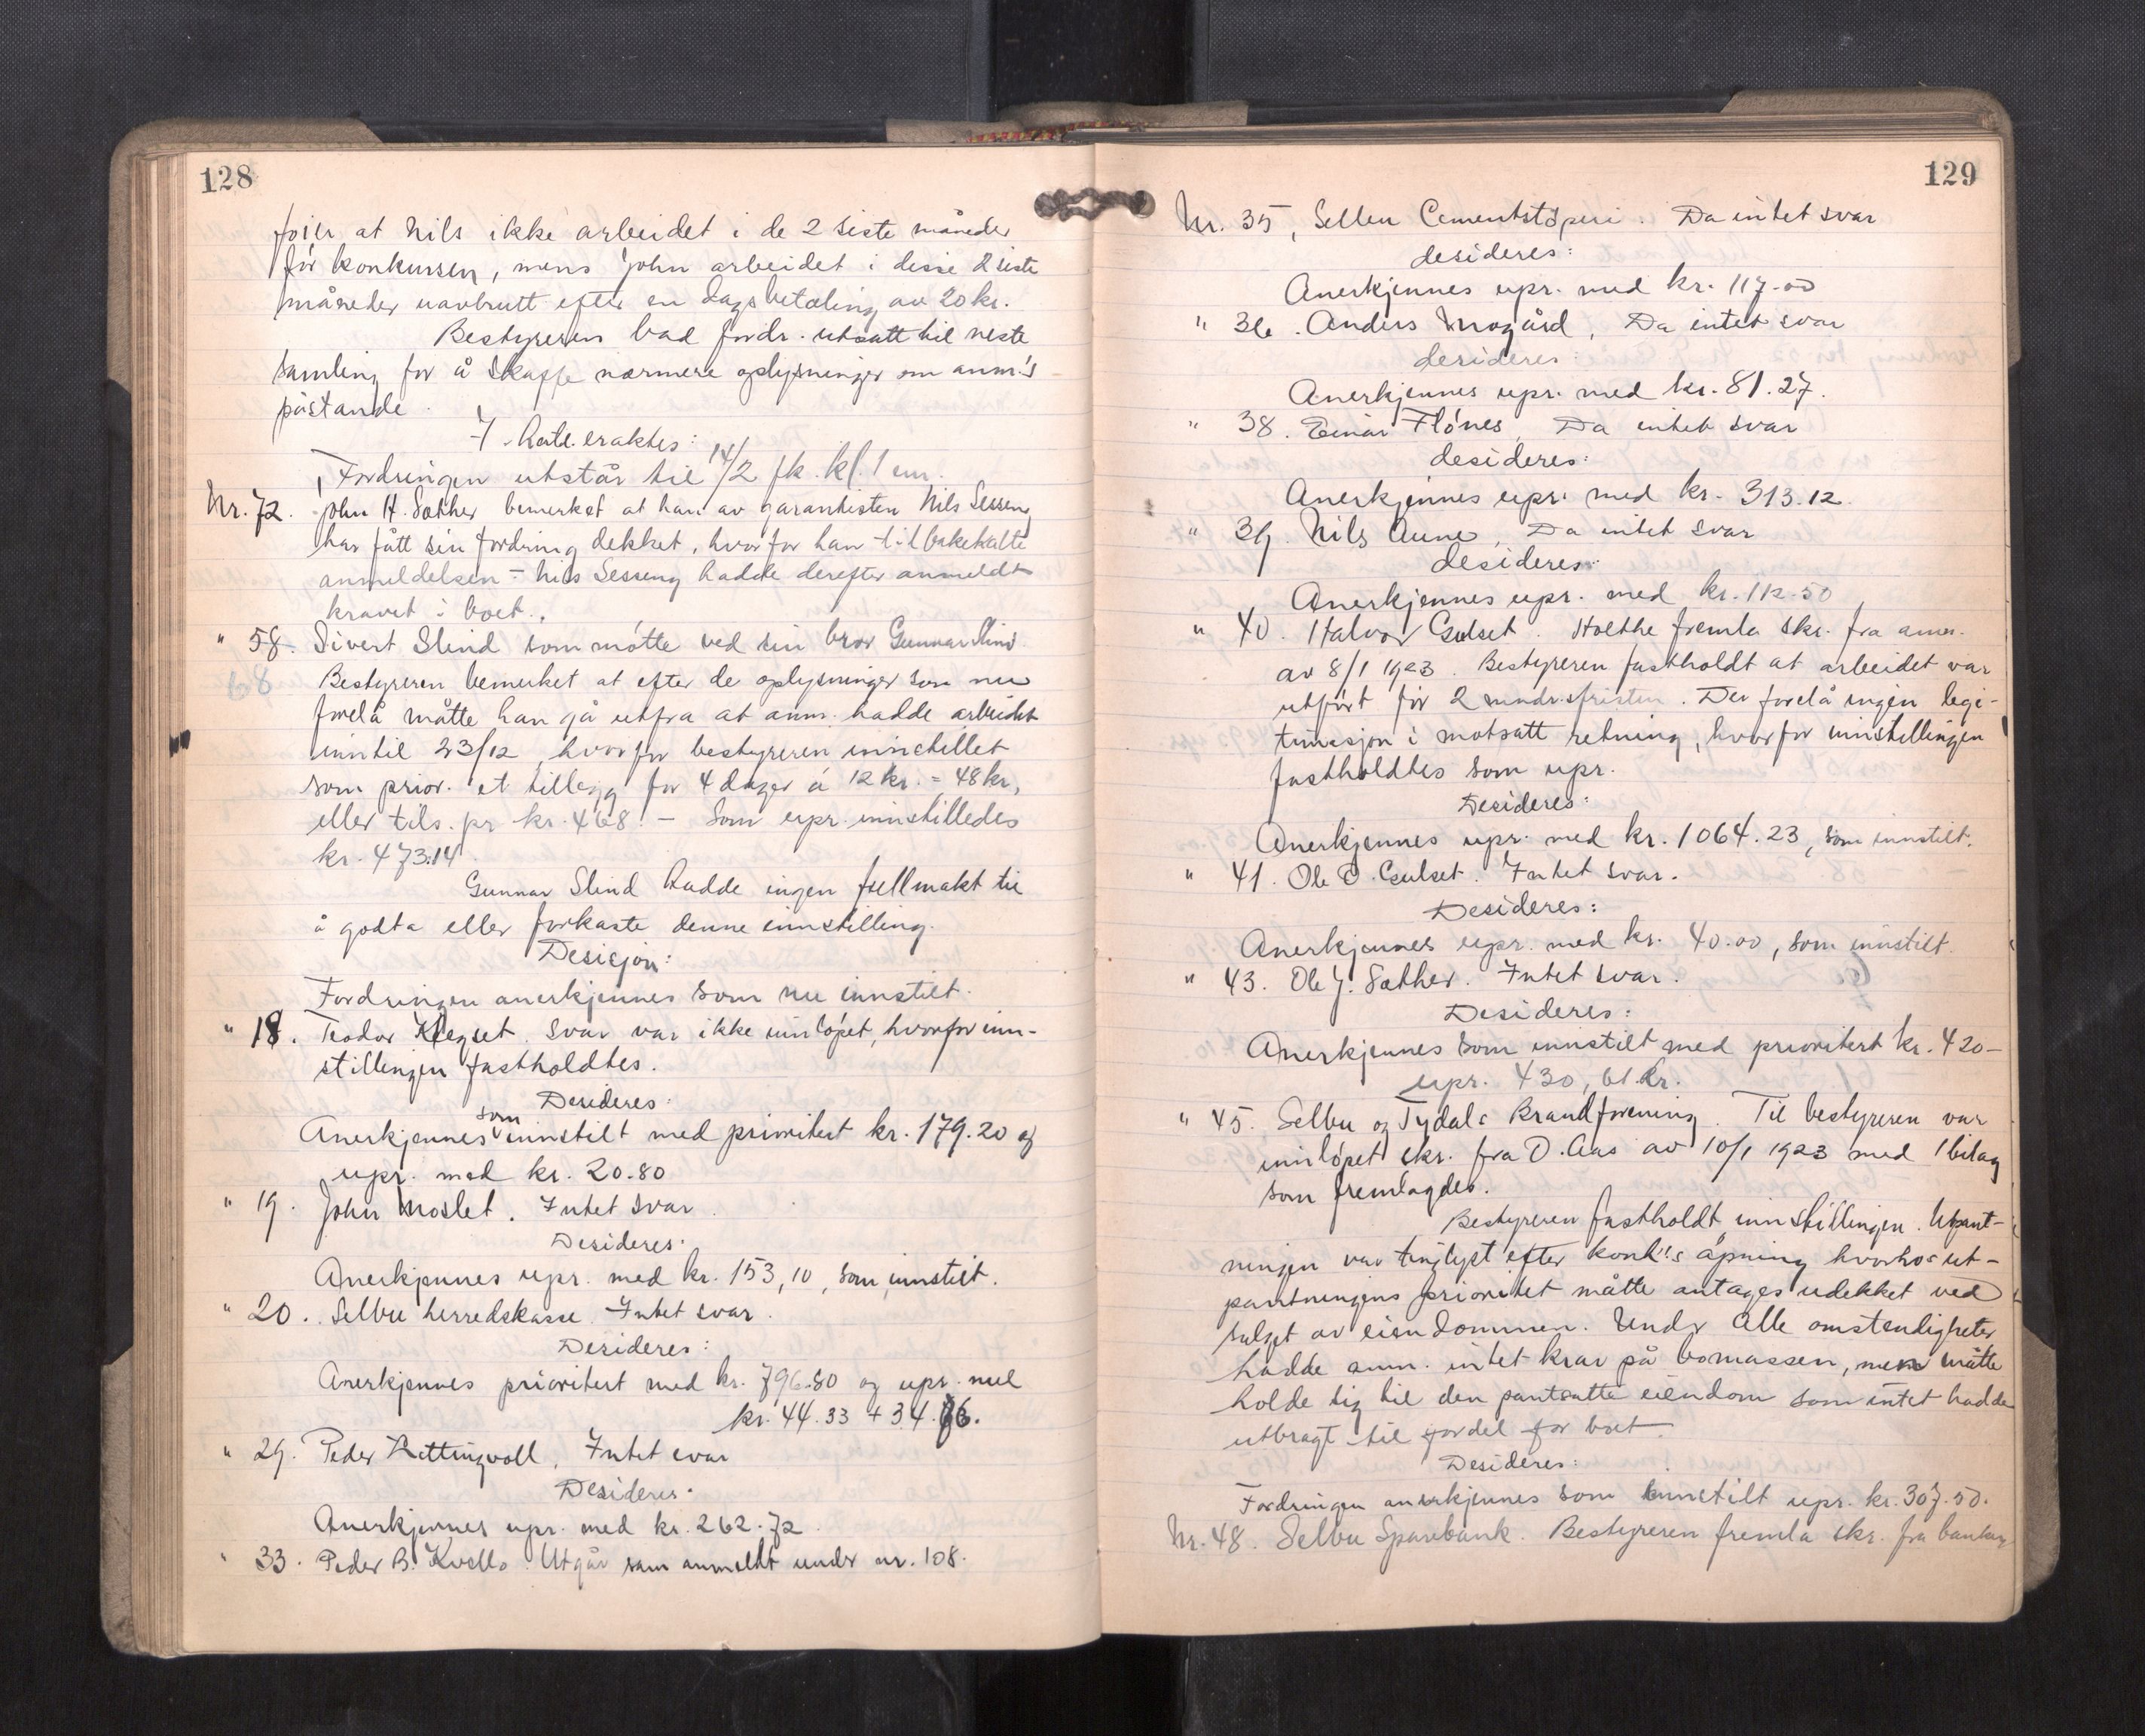 128
føier at Nils ikke arbeidet i de 2 siste måneder
før konkursen, mens John arbeidet i disse 2 siste
måneder uavbrutt efter en dagsbetaling av 20 kr.
Bestyreren bad fordr. utsatt til neste
samling for å skaffe nærmere oplysninger om anm.'s
påstande.
Fordringen utstår til 14/2 fk. kl. 1 em.
Nr. 72. John H. Sæther bemerket at han av garantisten Nils Sesseng
har fått sin fordring dekket, hvorfor han tilbakekalte
anmeldelsen - Nils Sesseng hadde derefter anmeldt
kravet i boet.
" 58. Sivert Slind som møtte ved sin bror Gunnar Slind.
68 Bestyreren bemerket at efter de oplysninger som nu
forelå måtte han gå utfra at anm. hadde arbeidet
inntil 23/12, hvorfor bestyreren innstillet
som prior. et tillegg for 4 dager á 12 kr. = 48 kr,
eller tils. pr kr. 468. - Som upr. innstilledes
kr. 473.14.
Gunnar Slind hadde ingen fullmakt til
å godta eller forkaste denne innstilling.
Desisjon:
Fordringen anerkjennes som nu innstilt.
" 18. Teodor Klegset. Svar var ikke innløpet, hvorfor inn-
stillingen fastholdtes.
Desideres:
Anerkjennes som innstilt med prioritert kr. 179.20 og
upr. med kr. 20.80
" 19. John Moslet. Intet svar.
Desideres:
Anerkjennes upr. med kr. 153,10, som innstilt.
" 20. Selbu herredskasse. Intet svar.
Desideres:
Anerkjennes prioritert med kr. 796.80 og upr. med
kr. 44.33 + 34.
" 29. Peder Rettingvoll, Intet svar
Desideres:
Anerkjennes upr. med kr. 262.72.
" 33. Peder B. Kvello. Utgår som anmeldt under nr. 108.
129
Nr. 35, Selbu Cementstøperi. Da intet svar
desideres:
Anerkjennes upr. med kr. 117.00
" 36. Anders Mogård, Da intet svar
desideres:
Anerkjennes upr. med kr. 81.27.
" 38. Einar Flønes, Da intet svar
desideres:
Anerkjennes upr. med kr. 313.12.
" 39. Nils Aune, Da intet svar
desideres:
Anerkjennes upr. med kr. 112.50
" 40. Halvor Gulset. Holthe fremla skr. fra anm.
av 8/1 1923. Bestyreren fastholdt at arbeidet var
utført før 2 mndr.sfristen. Der forelå ingen legi-
timasjon i motsatt retning, hvorfor innstillingen
fastholdtes som upr.
Desideres:
Anerkjennes upr. med kr. 1064.23, som innstilt.
" 41. Ole O. Gulset. Intet svar.
Desideres:
Anerkjennes upr. med kr. 40.00, som innstilt.
" 43. Ole J. Sæther. Intet svar.
Desideres:
Anerkjennes som innstilt med prioritert kr. 420-
upr. 430,61 kr.
" 45. Selbu og Tydals Brandforening. Til bestyreren var
innløpet skr. fra O. Aas av 10/1 1923 med 1 bilag
som fremlagdes.
Bestyreren fastholdt innstillingen. Utpant-
ningen var tinglyst efter konk's åpning hvorhos ut-
pantningens prioritet måtte antages udekket ved
salget av eiendommen. Under alle omstendigheter
hadde anm. intet krav på bomassen, men måtte
holde sig til den pantsatte eiendom som intet hadde
utbragt til fordel for boet.
Desideres:
Fordringen anerkjennes som innstilt upr. kr. 307.50.
Nr. 48. Selbu Sparebank. Bestyreren fremla skr. fra banken